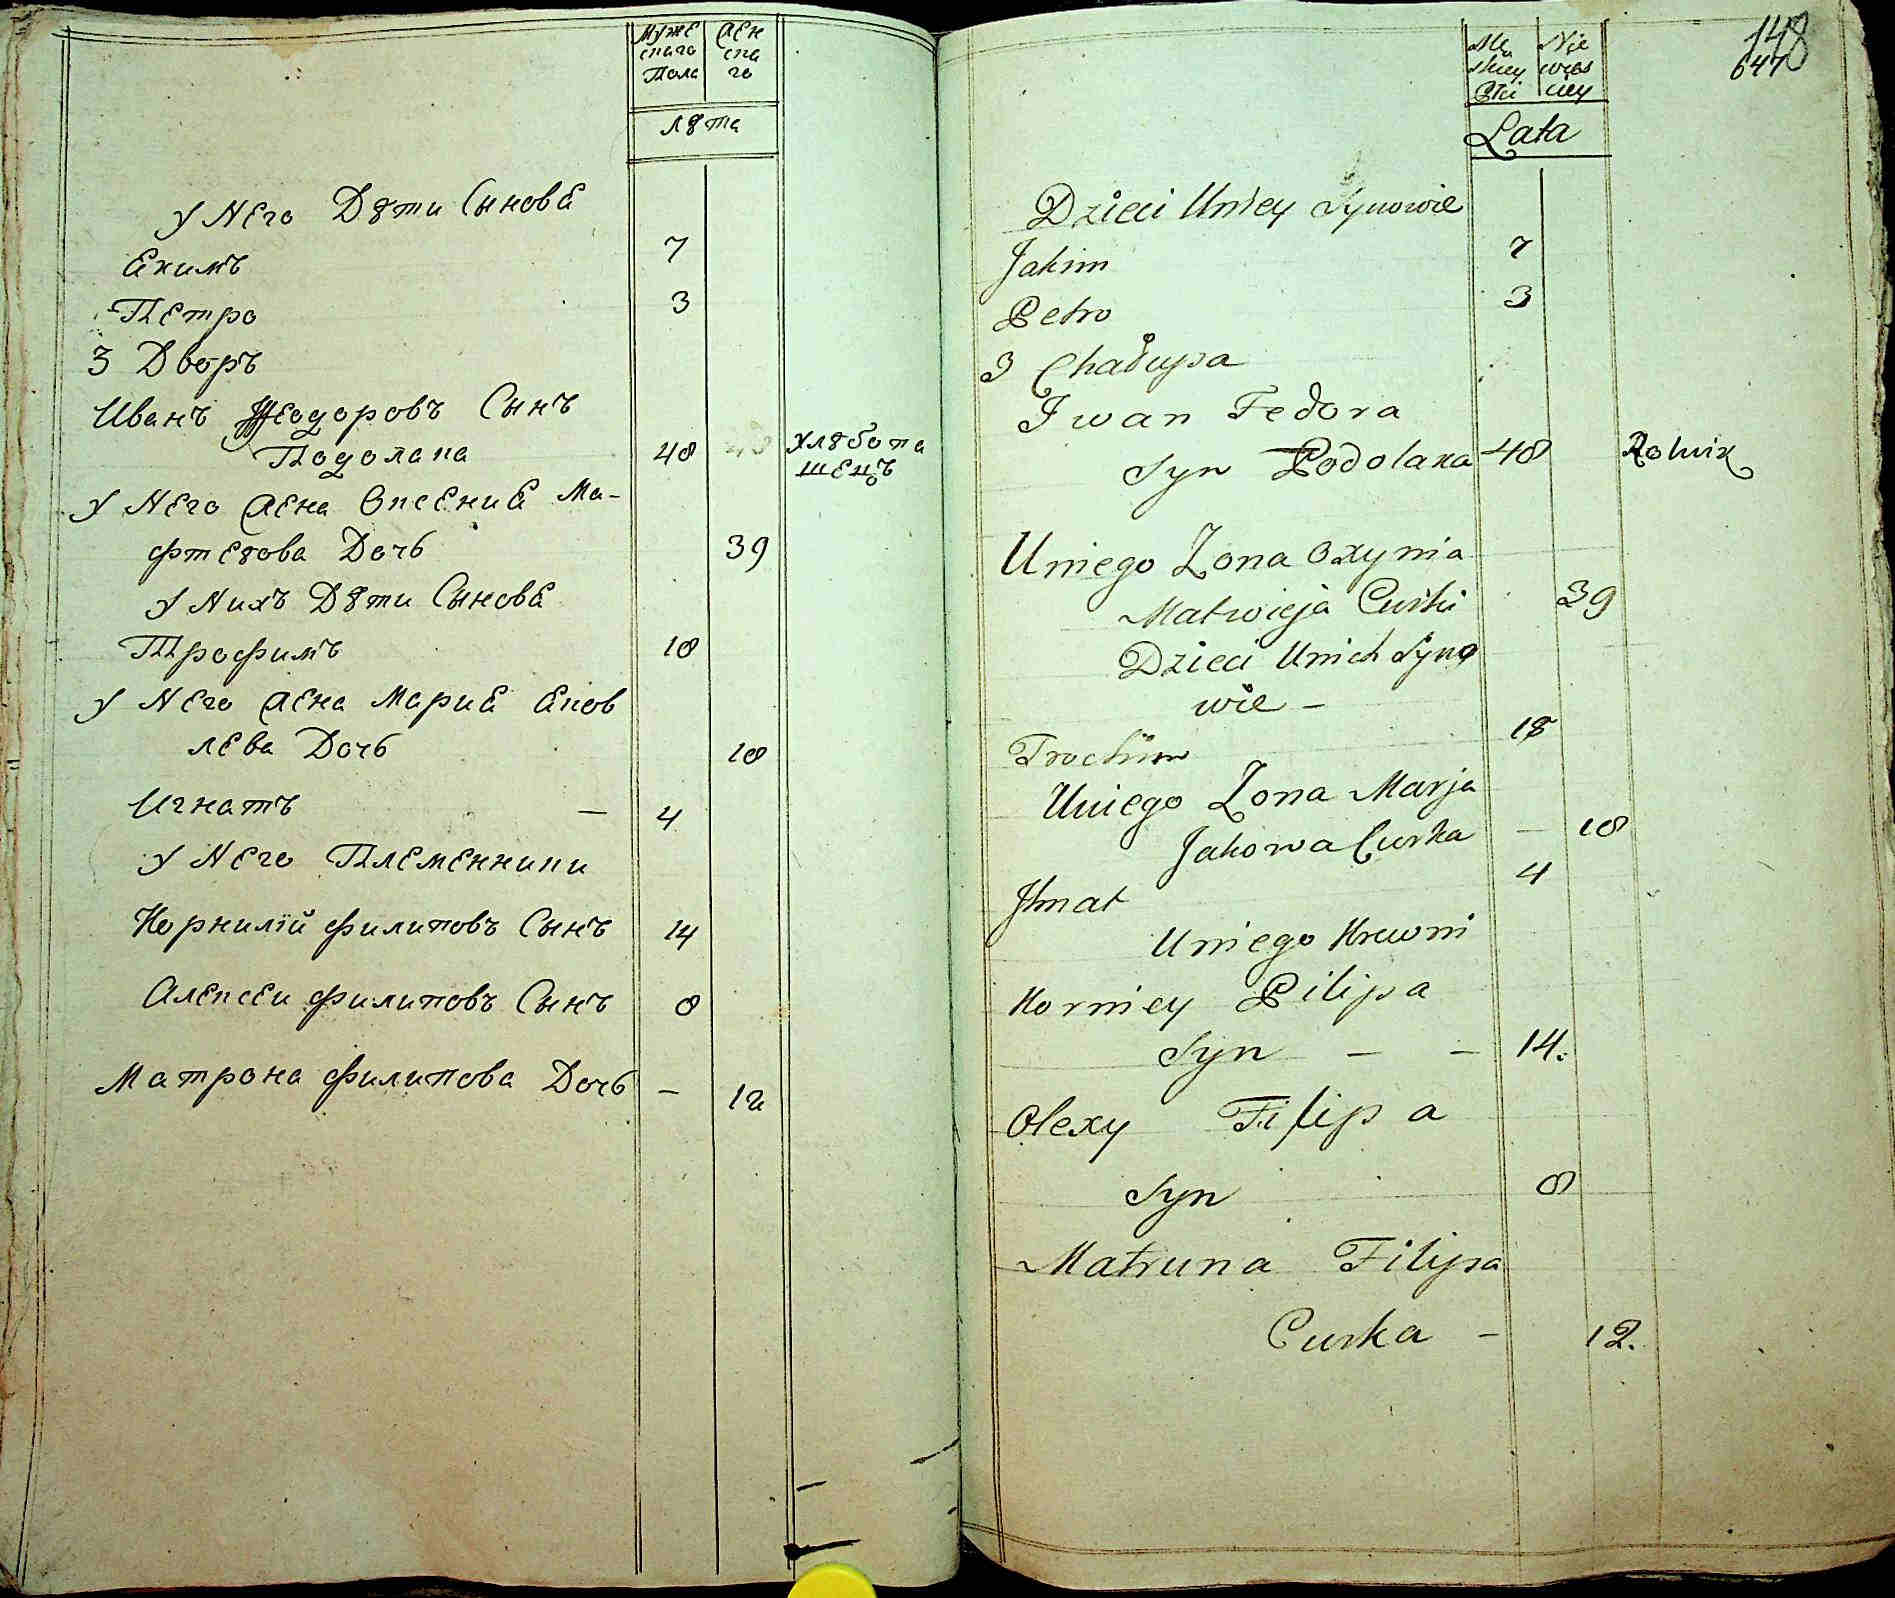 Мужескаго Пола
Женскаго
лѣта
у Него Дѣти Сыновя
Якимъ 7
Петро 3
3 Дворъ
Иванъ Феодоровъ Сынъ
Подолака 48 хлѣбопашецъ
у Него Жена Оксения Ма-
фтеева Дочь 39
у Нихъ Дѣти Сыновя
Трофимъ 18
у Него Жена Мария Яков
лева Дочь 18
Игнатъ — 4
у Него Племенники
Корнилій филиповъ Сынъ 14
Алексеи филиповъ Сынъ 8
Матрона филипова Дочь — 12
148
647
Mę skiey Płci
Nie wies ciey
Lata
Dzieci Uniey Synowie
Jakim 7
Petro 3
3 Chałupa
Iwan Fedora
Syn Podolaka 48 Rolnik
Uniego Zona Oxynia
Matwieja Curki 39
Dzieci Unich Syno
wie —
Trochim 18
Uniego Zona Marja
Jakowa Curka — 18
Ihnat 4
Uniego Krewni
Korniey Pilipa
Syn — — 14.
Olexy Filipa
Syn 8
Matruna Filipa
Curka — 12.